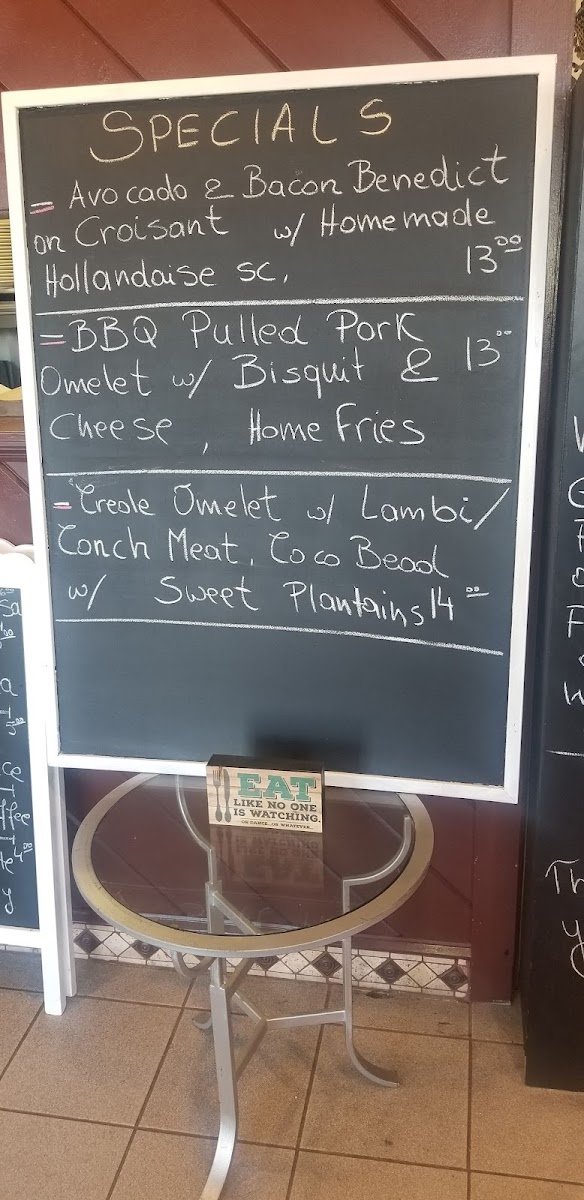 SPECIALS
- Avocado & Bacon Benedict
on Croisant w/ Homemade
Hollandaise sc, 13.00
- BBQ Pulled Pork
Omelet w/ Bisquit & 13.00
Cheese, Home Fries
- Creole Omelet w/ Lambi/
Conch Meat, Coco Bead
w/ Sweet Plantains 14.00
EAT
LIKE NO ONE
IS WATCHING.
OR DANCE...OR WHATEVER...